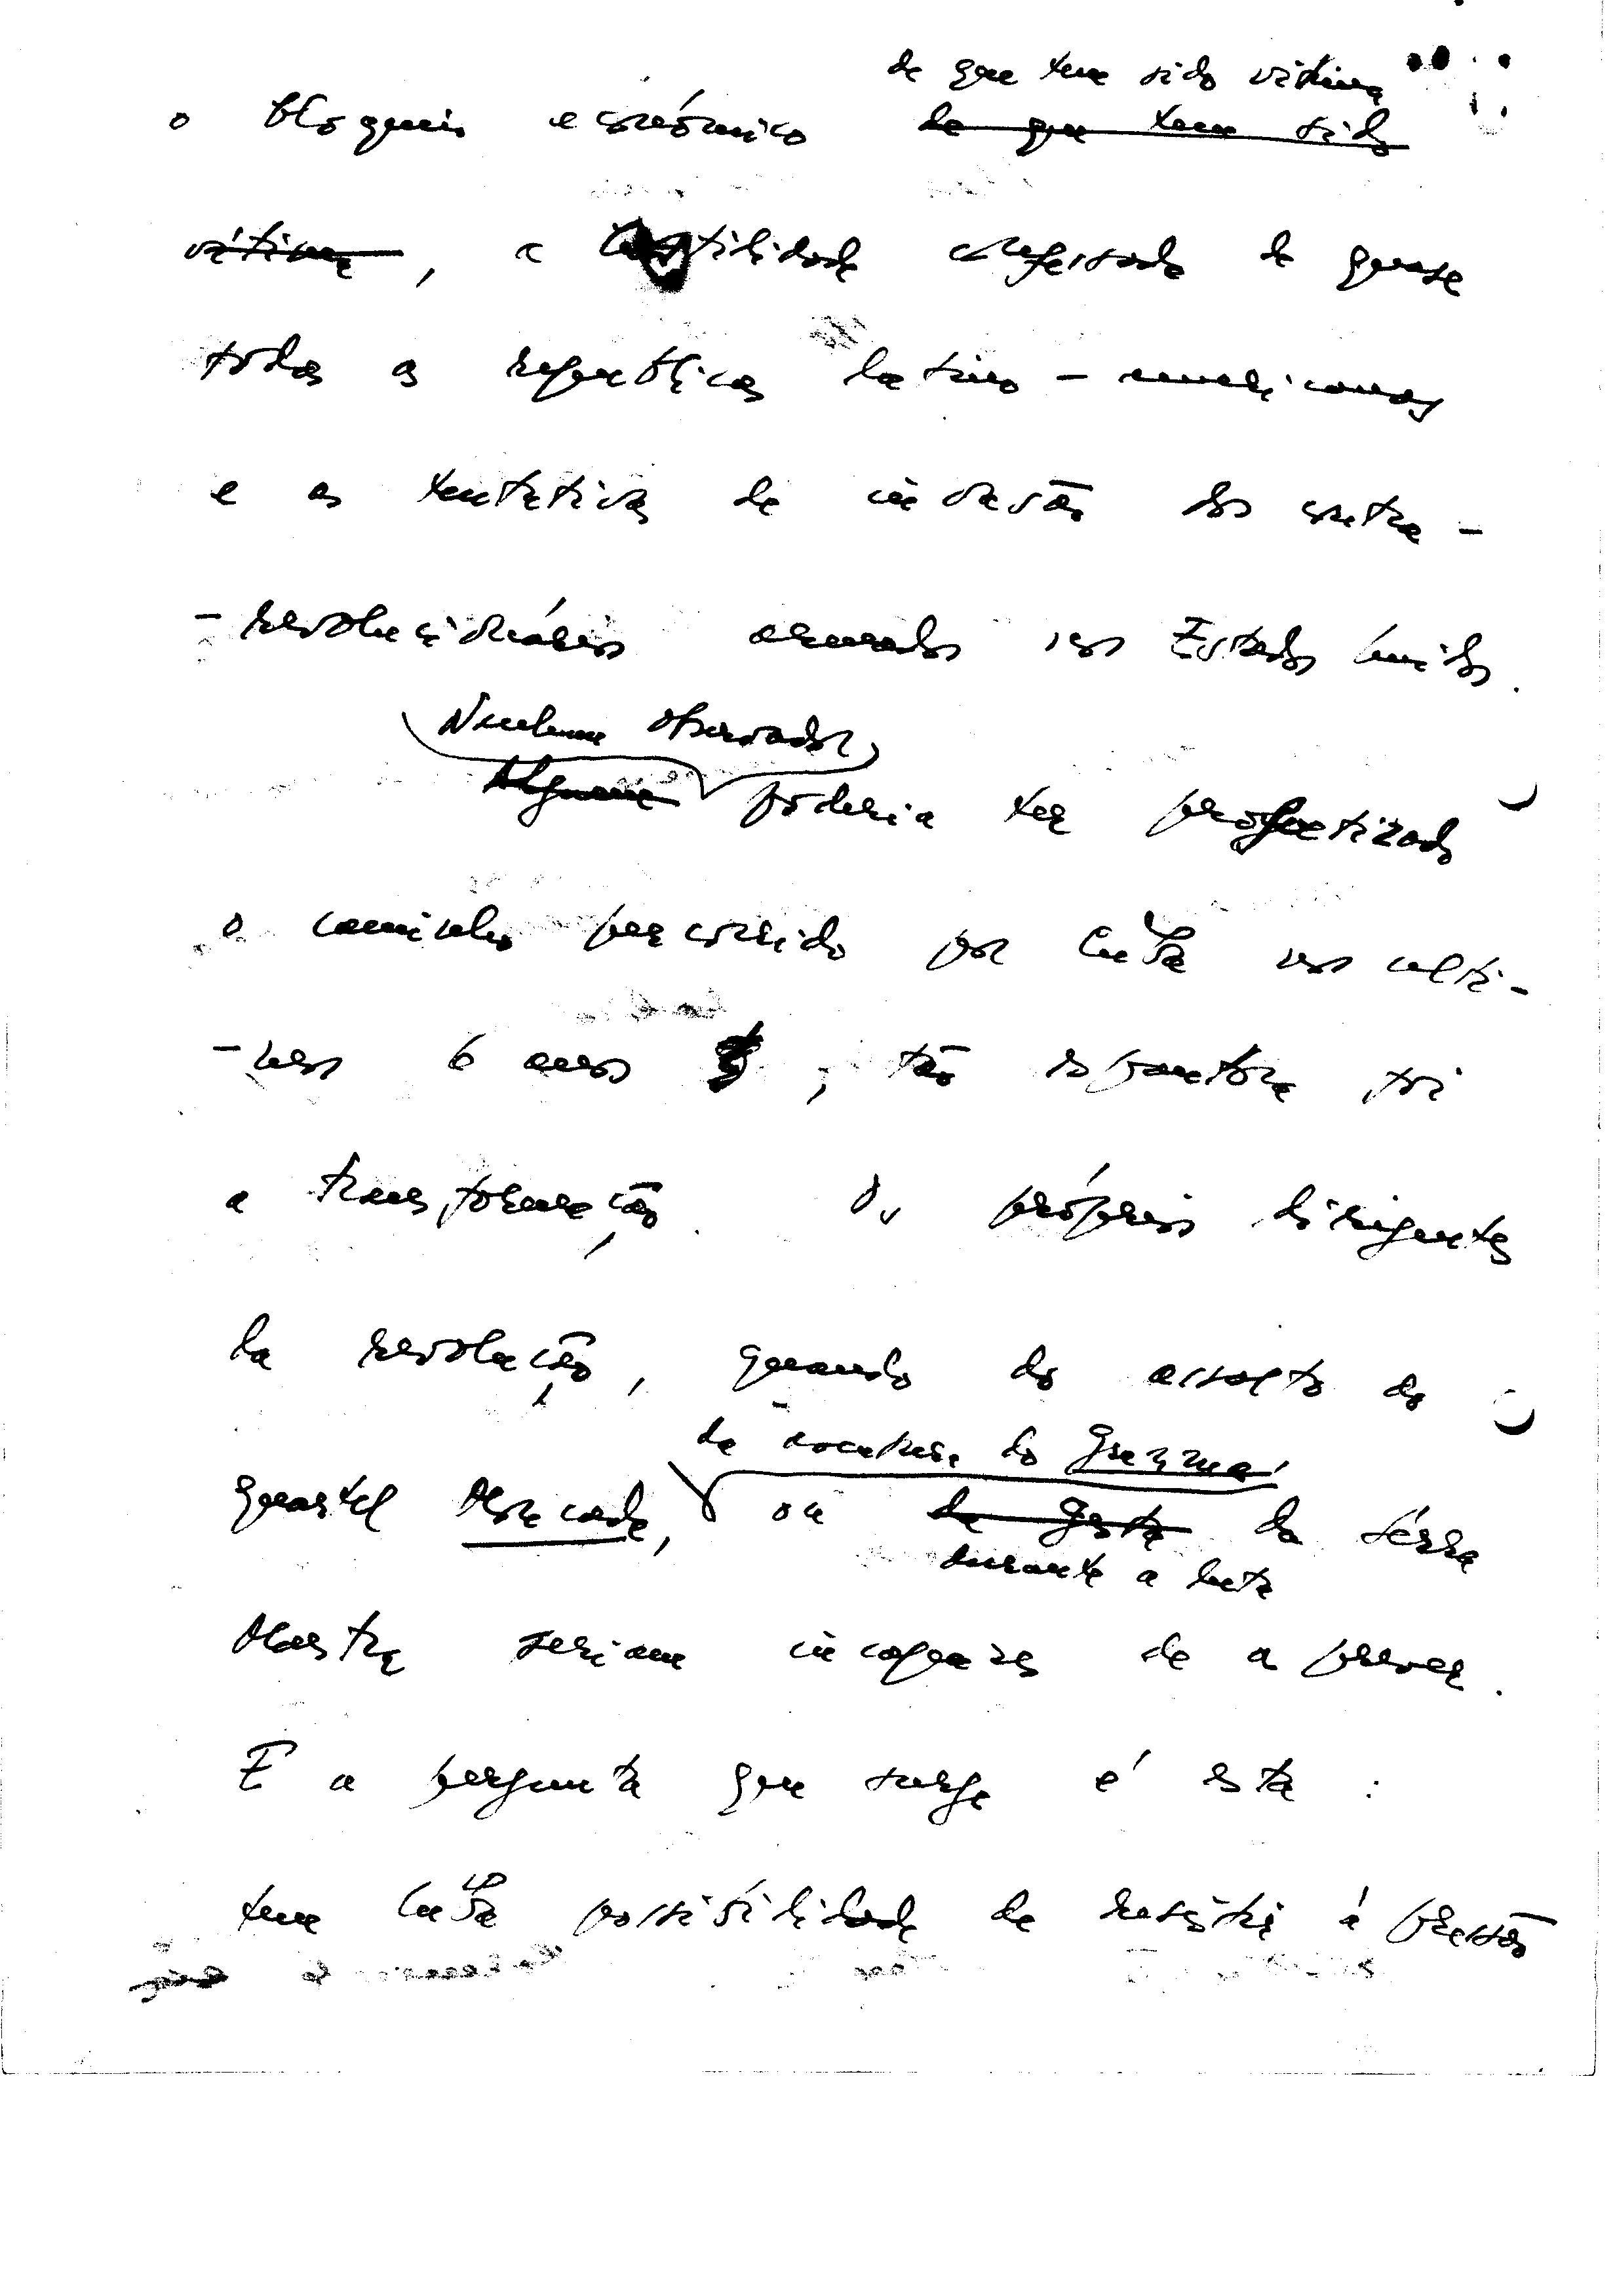 de que tem sido vítima
o bloqueio económico de que tem sido
vítima, a hostilidade confessada de quase
todas as republicas latino - americanas
e as tentativas de invasão dos contra -
- revolucionários armados nos Estados Unidos.
Nenhum observador
Alguem poderia ter profetizado
o caminho percorrido por Cuba nos ulti -
- mos 6 anos, tão espantosa foi
a transformação. Os próprios dirigentes
da revolução, quando do assalto do
da aventura do Granma
quartel Moncada, ou da gesta da Sérra
durante a luta
Maestra seriam incapazes de a prever.
E a pergunta que surge é esta :
tem Cuba possibilidade de resistir á pressão